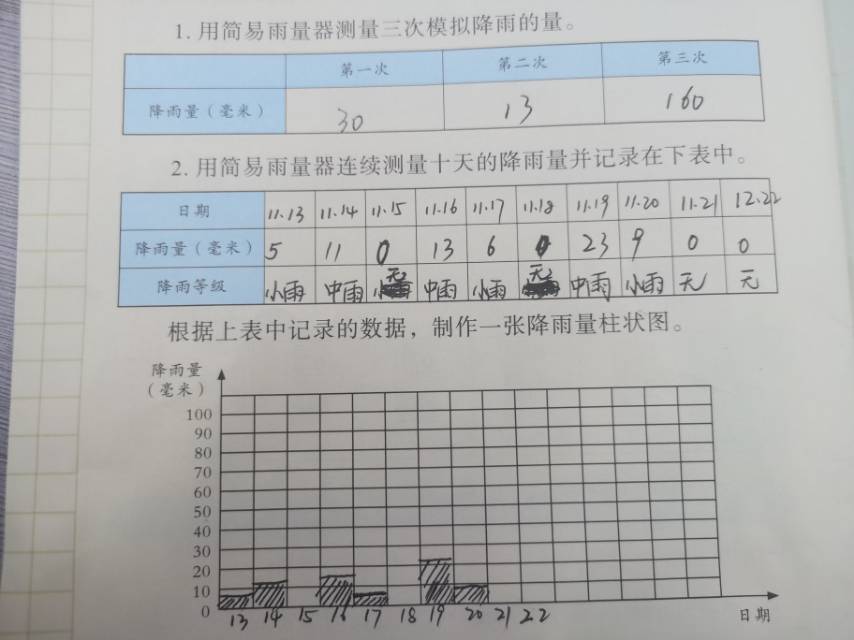 1. 用简易雨量器测量三次模拟降雨的量。
第一次 第二次 第三次
降雨量（毫米） 30 13 160
2. 用简易雨量器连续测量十天的降雨量并记录在下表中。
日期 11.13 11.14 11.15 11.16 11.17 11.18 11.19 11.20 11.21 12.22
降雨量（毫米） 5 11 0 13 6 0 23 9 0 0
降雨等级 小雨 中雨 无 中雨 小雨 无 中雨 小雨 无 无
根据上表中记录的数据，制作一张降雨量柱状图。
降雨量
（毫米）
100
90
80
70
60
50
40
30
20
10
0
13 14 15 16 17 18 19 20 21 22
日期